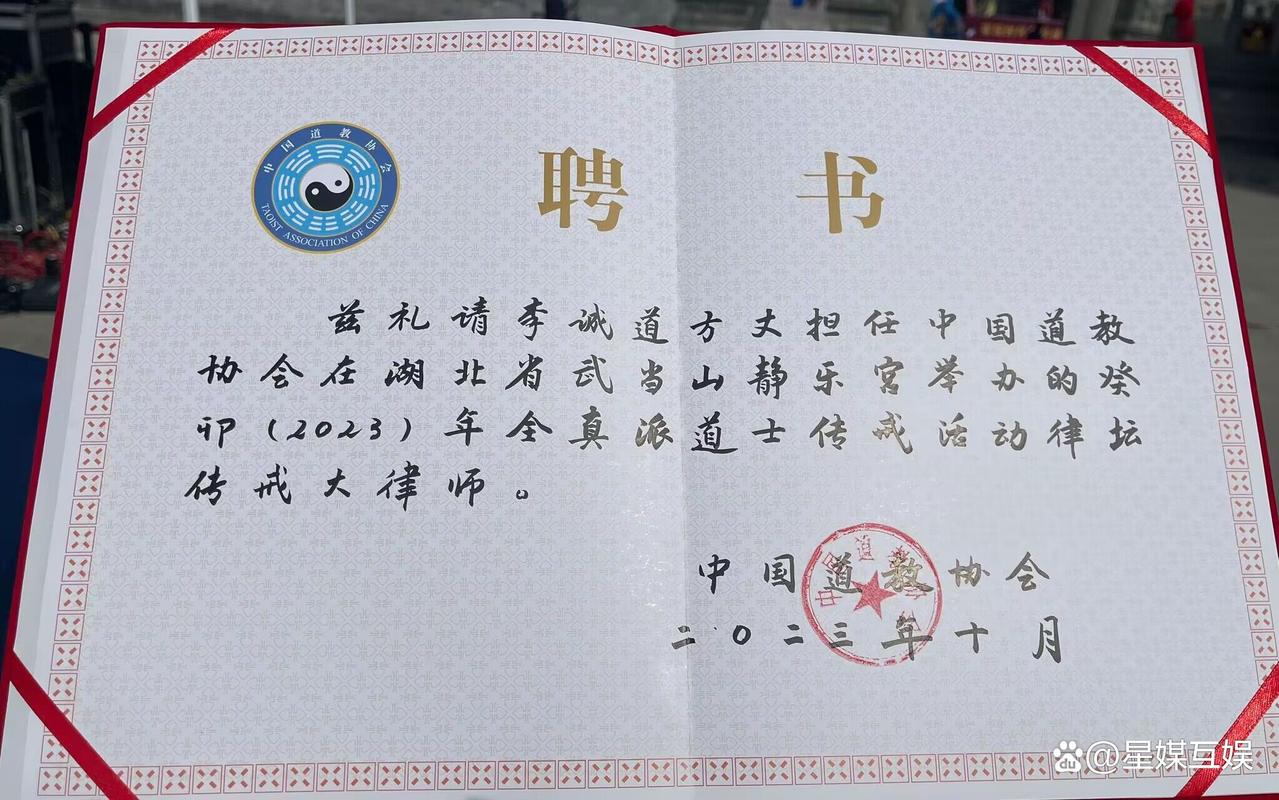 中国道教协会
TAOIST ASSOCIATION OF CHINA
聘书
兹礼请李诚道方丈担任中国道教
协会在湖北省武当山静乐宫举办的癸
卯（2023）年全真派道士传戒活动律坛
传戒大律师。
中国道教协会
二〇二三年十月
@星媒互娱